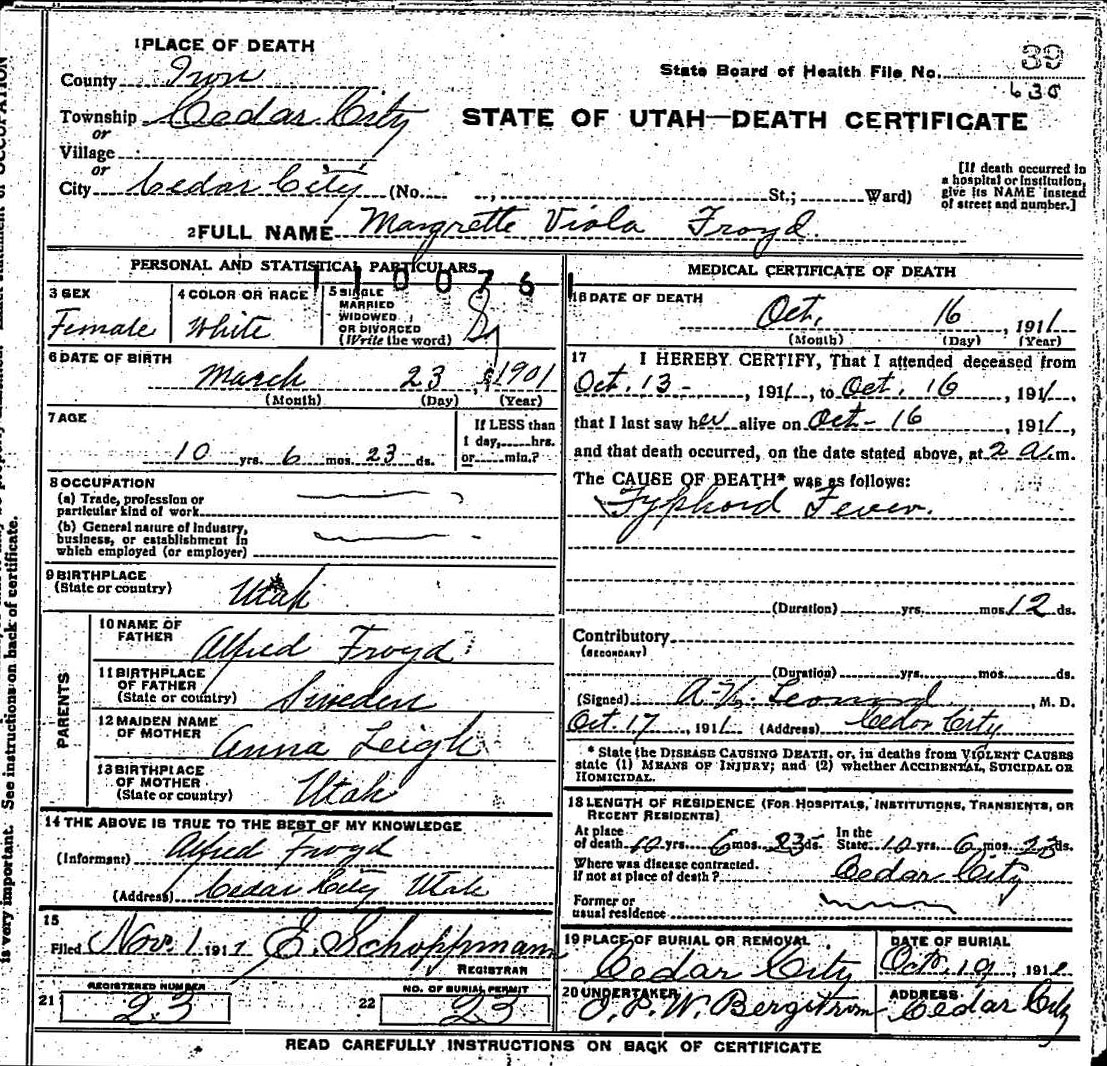 1 PLACE OF DEATH
County Iron
Township Cedar City
or
Village
or
City Cedar City (No. , St.; Ward)
State Board of Health File No. 39
630
STATE OF UTAH—DEATH CERTIFICATE
[If death occurred in
a hospital or institution,
give its NAME instead
of street and number.]
2 FULL NAME Margrette Viola Froyd.
PERSONAL AND STATISTICAL PARTICULARS
110076
3 SEX
Female
4 COLOR OR RACE
White
5 SINGLE
MARRIED
WIDOWED
OR DIVORCED
(Write the word)
6 DATE OF BIRTH
March 23, 1901
(Month) (Day) (Year)
7 AGE
10 yrs. 6 mos. 23 ds.
If LESS than
1 day, hrs.
or min.?
8 OCCUPATION
(a) Trade, profession or
particular kind of work
(b) General nature of industry,
business, or establishment in
which employed (or employer)
9 BIRTHPLACE
(State or country)
Utah
PARENTS
10 NAME OF
FATHER
Alfred Froyd
11 BIRTHPLACE
OF FATHER
(State or country)
Sweden
12 MAIDEN NAME
OF MOTHER
Anna Leigh
13 BIRTHPLACE
OF MOTHER
(State or country)
Utah
14 THE ABOVE IS TRUE TO THE BEST OF MY KNOWLEDGE
(Informant) Alfred Froyd
(Address) Cedar City Utah
15
Filed Nov. 1 1911 E. Schoppmann
REGISTRAR
21 REGISTERED NUMBER
23
22 NO. OF BURIAL PERMIT
23
MEDICAL CERTIFICATE OF DEATH
16 DATE OF DEATH
Oct. 16, 1911
(Month) (Day) (Year)
17 I HEREBY CERTIFY, That I attended deceased from
Oct. 13 -, 1911, to Oct. 16, 1911,
that I last saw her alive on Oct - 16, 1911,
and that death occurred, on the date stated above, at 2 A. m.
The CAUSE OF DEATH* was as follows:
Typhoid Fever.
(Duration) yrs. mos. 12 ds.
Contributory
(SECONDARY)
(Duration) yrs. mos. ds.
(Signed) Leonard, M. D.
Oct. 17, 1911 (Address) Cedar City
* State the DISEASE CAUSING DEATH, or, in deaths from VIOLENT CAUSES
state (1) MEANS OF INJURY; and (2) whether ACCIDENTAL, SUICIDAL OR
HOMICIDAL.
18 LENGTH OF RESIDENCE (FOR HOSPITALS, INSTITUTIONS, TRANSIENTS, OR
RECENT RESIDENTS)
At place In the
of death 10 yrs. 6 mos. 23 ds. State 10 yrs. 6 mos. 23 ds.
Where was disease contracted.
If not at place of death? Cedar City
Former or
usual residence
19 PLACE OF BURIAL OR REMOVAL
Cedar City
DATE OF BURIAL
Oct. 19, 1911
20 UNDERTAKER
J. P. W. Bergstrom
ADDRESS
Cedar City
READ CAREFULLY INSTRUCTIONS ON BACK OF CERTIFICATE
is very important. See instructions on back of certificate.